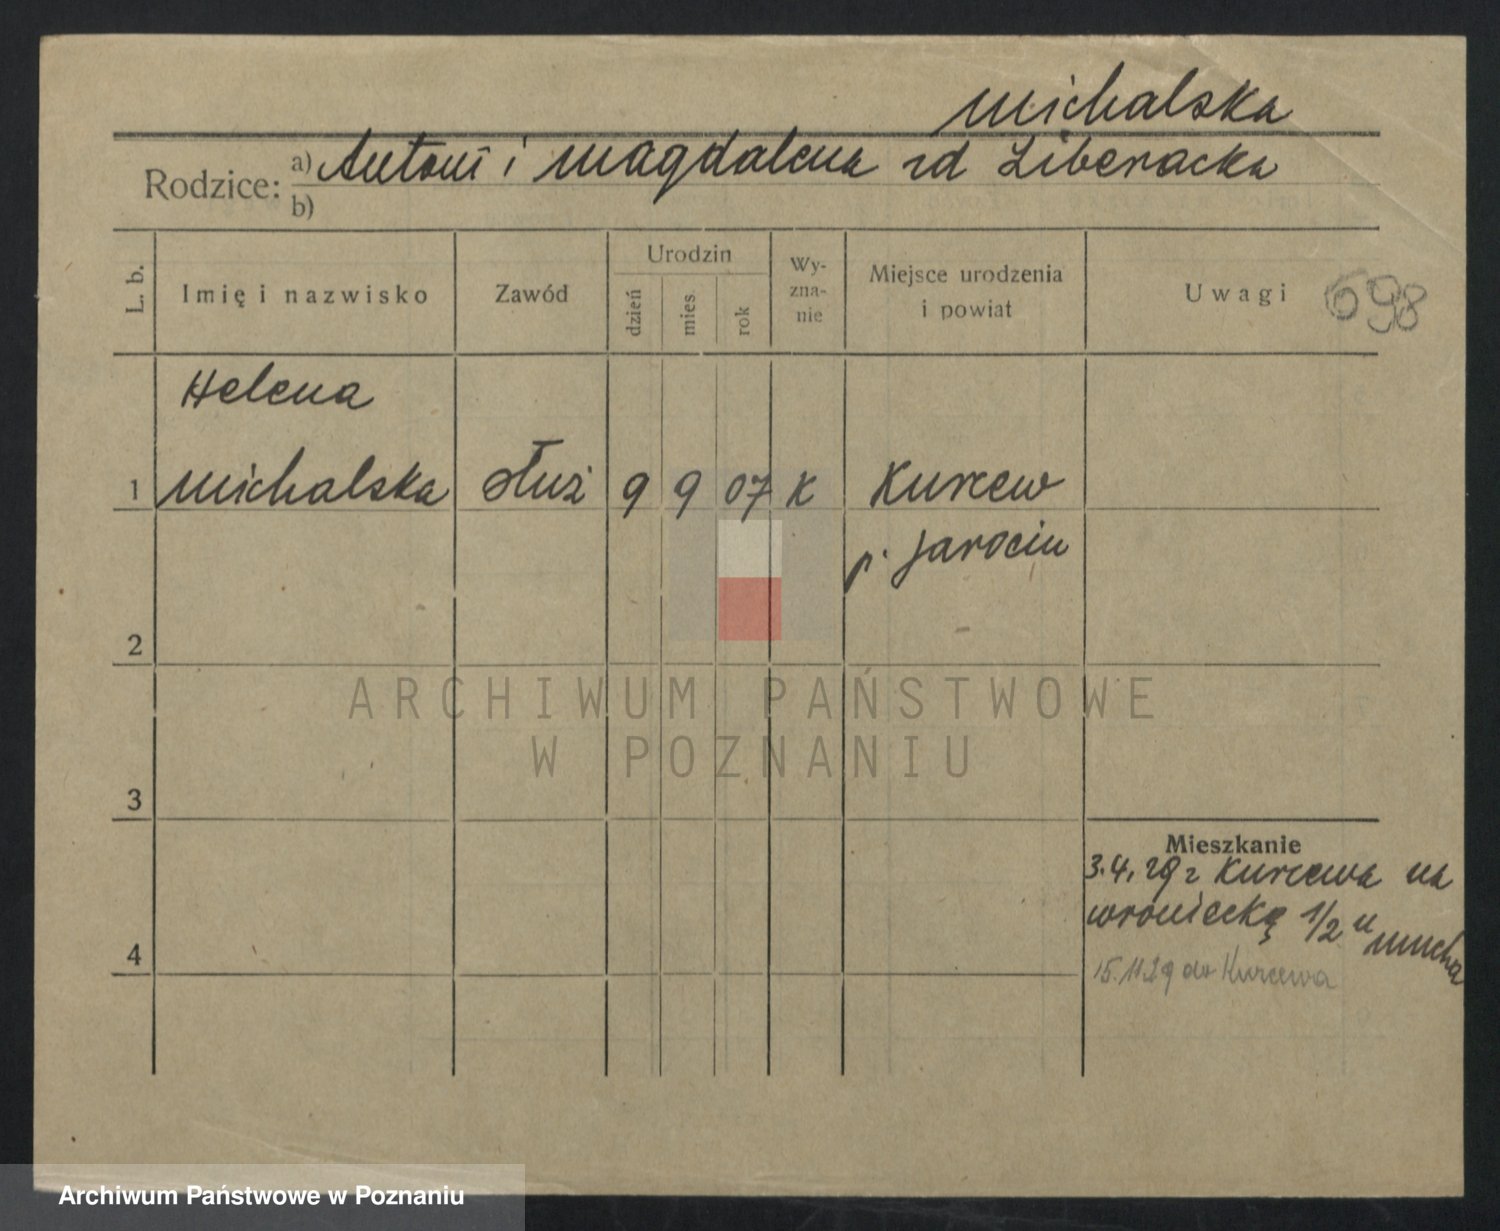 Michalska
Rodzice: a) Antoni i Magdalena zd Liberacka
b)
L. b. Imię i nazwisko Zawód Urodzin dzień mies. rok Wy-zna-nie Miejsce urodzenia i powiat Uwagi 698
Helena
1 Michalska służ 9 9 07 K Kurcew
p. Jarocin
2
ARCHIWUM PAŃSTWOWE
W POZNANIU
3
Mieszkanie
3.4.29 z Kurcewa na
Wroniecką 1/2 u Mucha
4
15.11.29 do Kurcewa
Archiwum Państwowe w Poznaniu